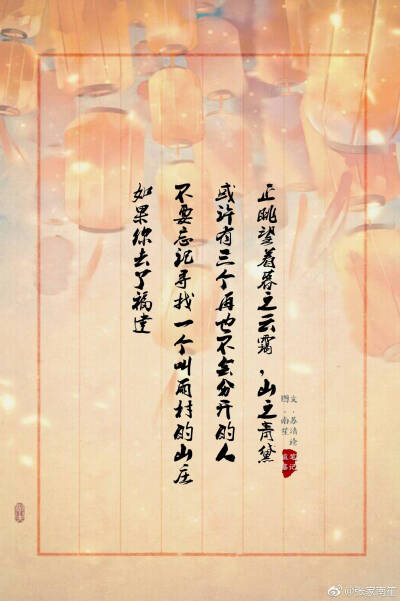 如果你去了福建
不要忘记寻找一个叫雨村的山庄
或许有三个再也不会分开的人
正眺望着暮之云霭，山之青黛
赠.南笙
盗墓
笔记
@张家南笙